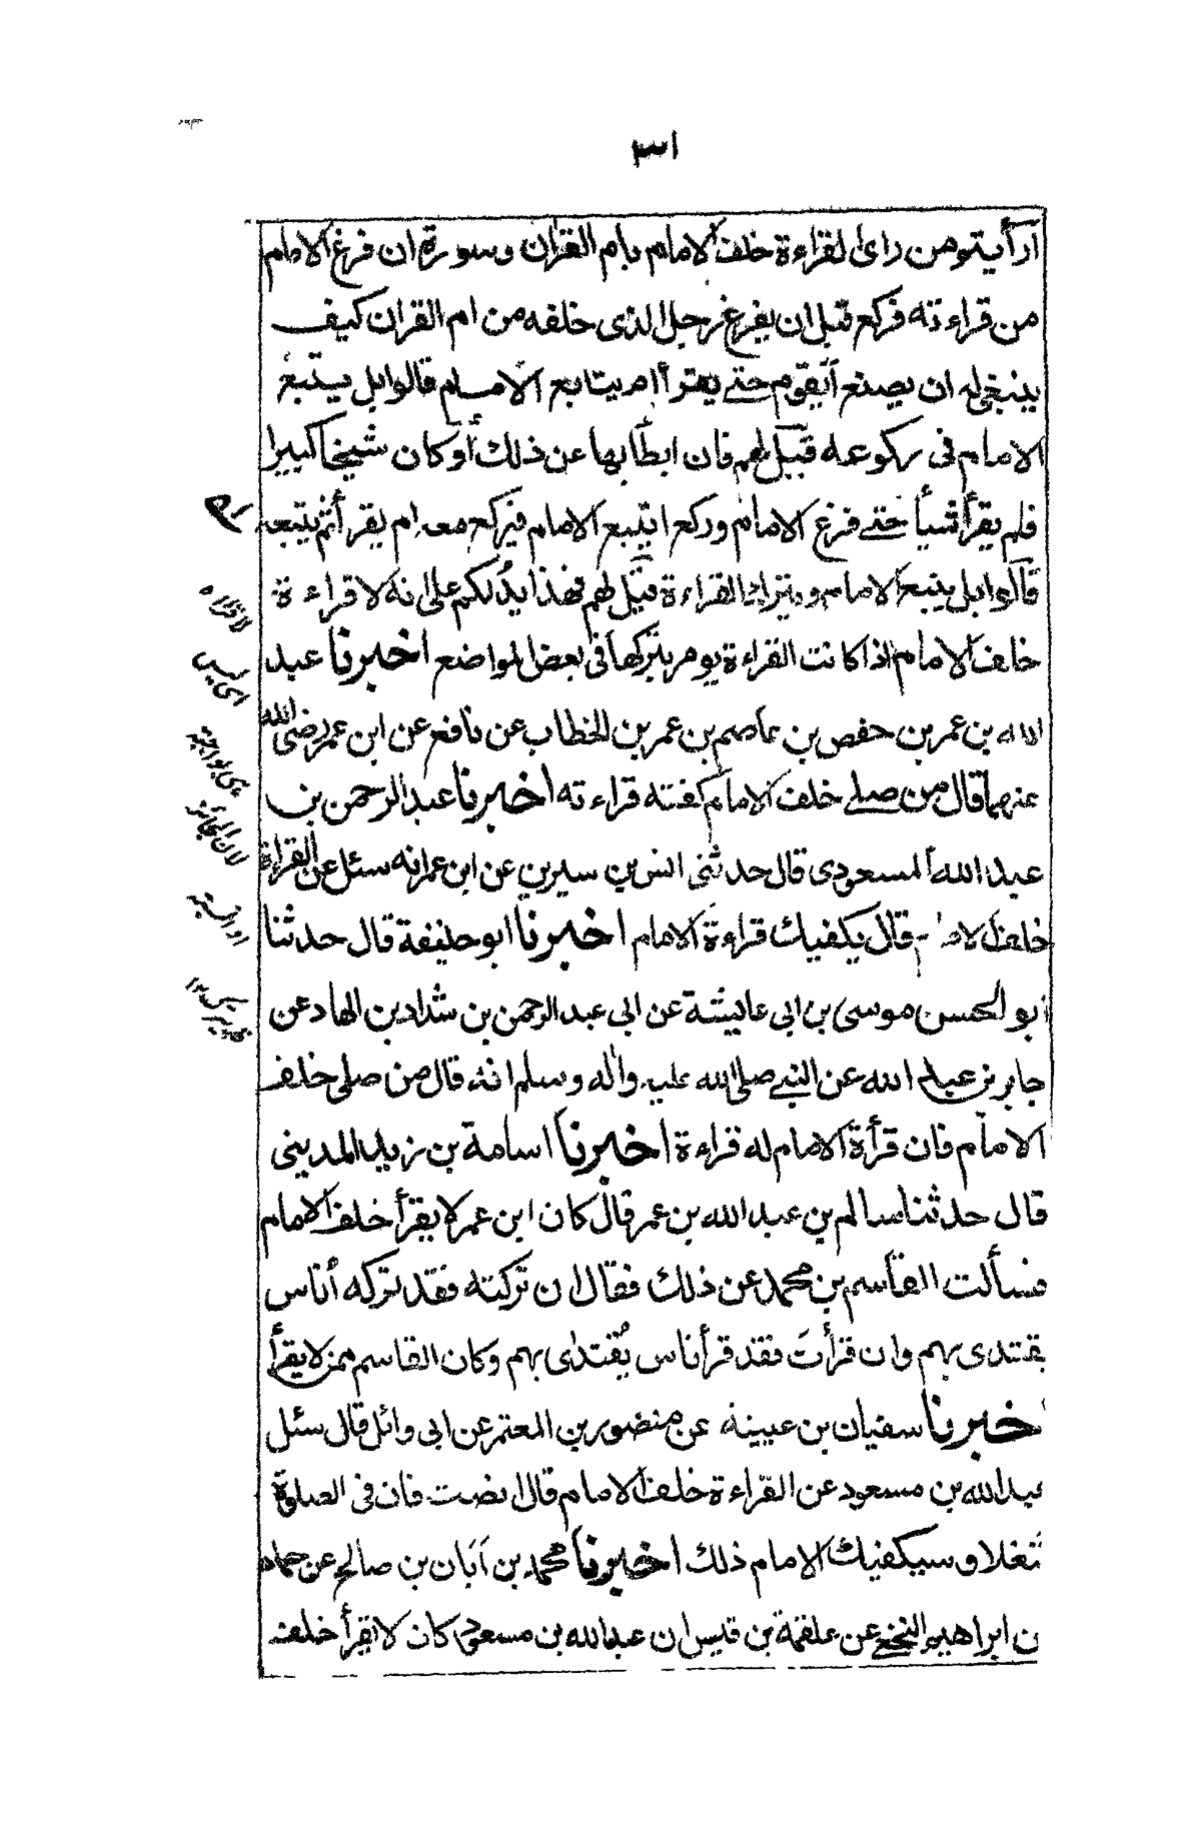 ٣١
أرأيتم من راى القراءة خلف الامام بام القران وسورة ان فرغ الامام
من قراءته فركع قبل ان يفرغ رجل الذى خلفه من ام القران كيف
ينبغى له ان يصنع أيقوم حتے يقرأ ام يتابع الامام قالوا بل يتبع
الامام فى ركوعه قيل لهم فان ابطأ بها عن ذلك أو كان شيخا كبيرا
فلم يقرأ شيأ حتے فرغ الامام وركع ايتبع الامام فيركع معه ام يقرأ ثم يتبعه
قالوا بل يتبع الامام ويترك القراءة قيل لهم فهذا يدلكم على انه لا قراءة
خلف الامام اذا كانت القراءة يومر بتركها فى بعض المواضع اخبرنا عبد
الله بن عمر بن حفص بن عاصم بن عمر بن الخطاب عن نافع عن ابن عمر رضى الله
عنهما قال من صلے خلف الامام كفته قراءته اخبرنا عبد الرحمن بن
عبد الله المسعودى قال حدثنى انس بن سيرين عن ابن عمر انه سئل عن القراءة
خلف الامام قال يكفيك قراءة الامام اخبرنا ابو حنيفة قال حدثنا
ابو الحسن موسى بن ابى عايشة عن ابى عبد الرحمن بن شداد بن الهاد عن
جابر بن عبد الله عن النبے صلى الله عليه واله وسلم انه قال من صلى خلف
الامام فان قرأة الامام له قراءة اخبرنا اسامة بن زيد المدينى
قال حدثنا سالم بن عبد الله بن عمر قال كان ابن عمر لا يقرأ خلف الامام
فسألت القاسم بن محمد عن ذلك فقال ان تركته فقد تركه أناس
يقتدى بهم وان قرأت فقد قرأ ناس يُقتدى بهم وكان القاسم ممن لا يقرأ
اخبرنا سفيان بن عيينة عن منصور بن المعتمر عن ابى وائل قال سئل
عبد الله بن مسعود عن القراءة خلف الامام قال انصت فان فى الصلوة
شغلا و سيكفيك الامام ذلك اخبرنا محمد بن أبان بن صالح عن حماد
عن ابراهيم النخعے عن علقمة بن قيس ان عبد الله بن مسعود كان لا يقرأ خلف